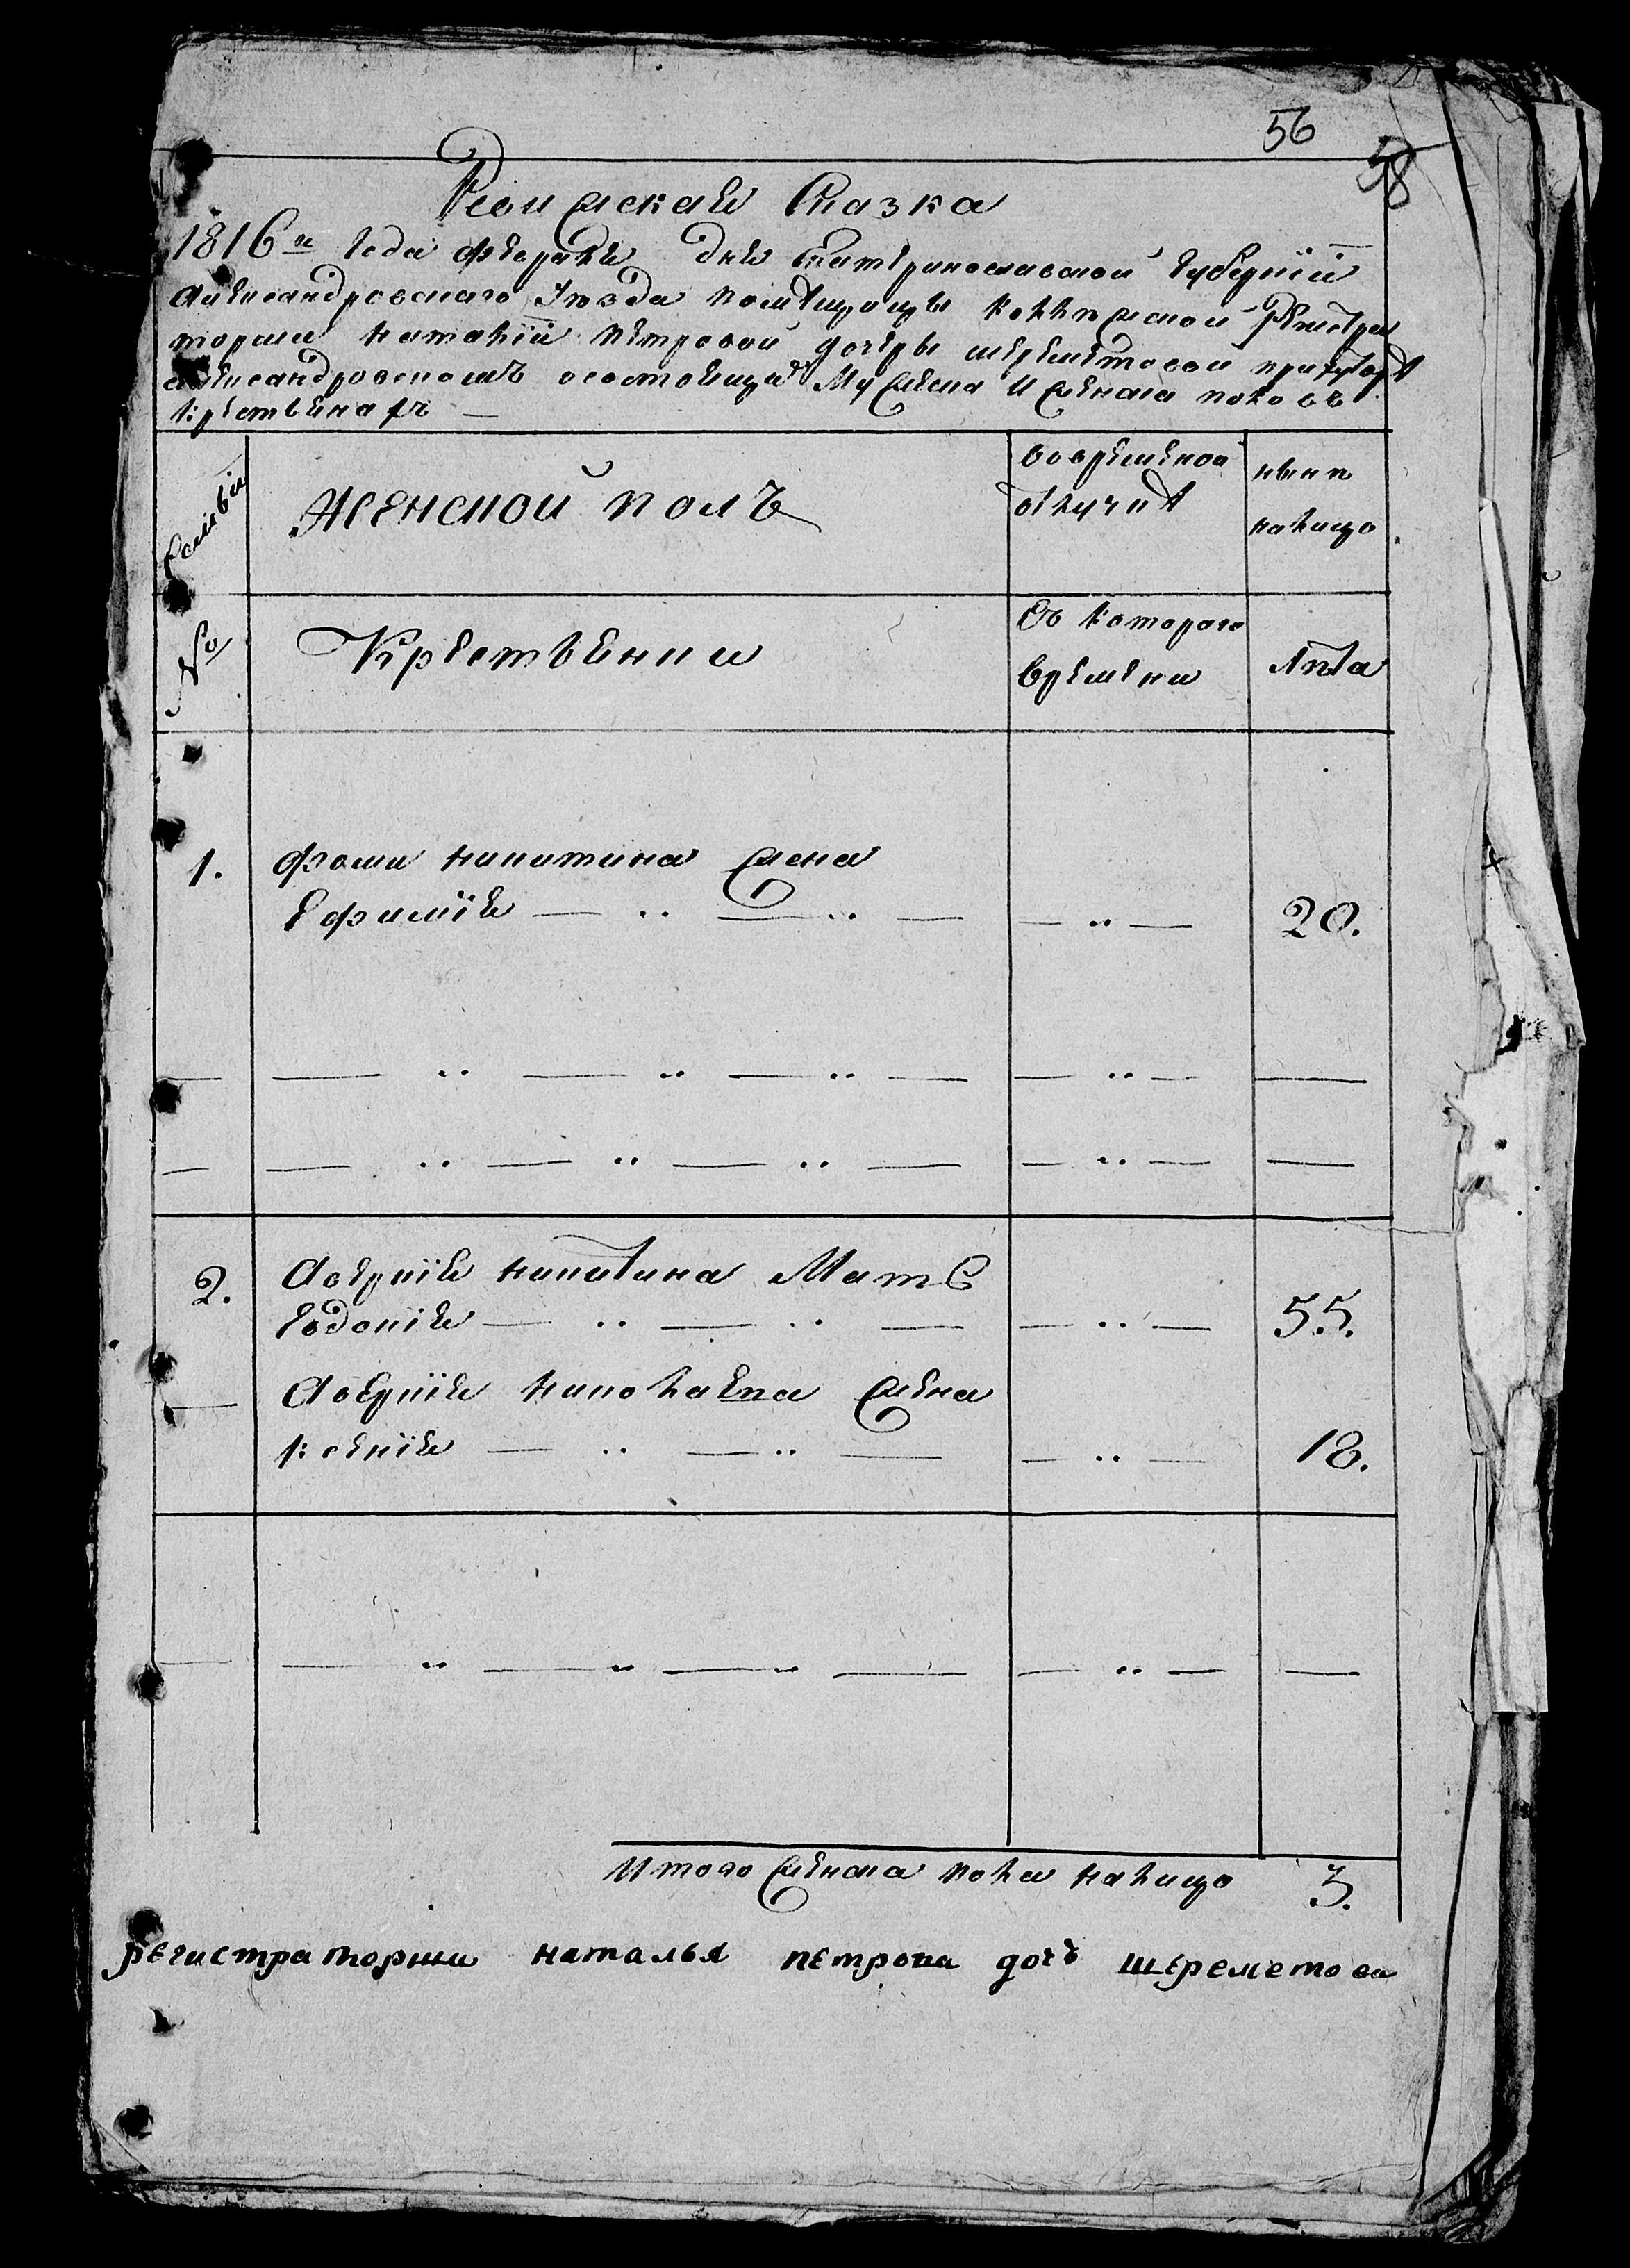 56
58
Ревижская Сказка
1816го года февраля дня Екатеринославской губернїи
Александровского уезда помещицы коллежской регистра
торши наталїи петровой дочеры шереметовой при городе
александровскомъ о состоящихъ Мужеска И женска пола
крестьянахъ
Семьи
Женской полъ
во временной
отлучке
ныне
налицо
№
Крестьянки
Съ которого
времени
Лета
1.
фомы никитина жена
Ефимїя
20.
2.
Аверкїя никитина Мать
Евдокїя
55.
Аверкїя николаева жена
18.
Итого женска пола налицо
3.
регистраторша наталья петрова дочъ шереметова